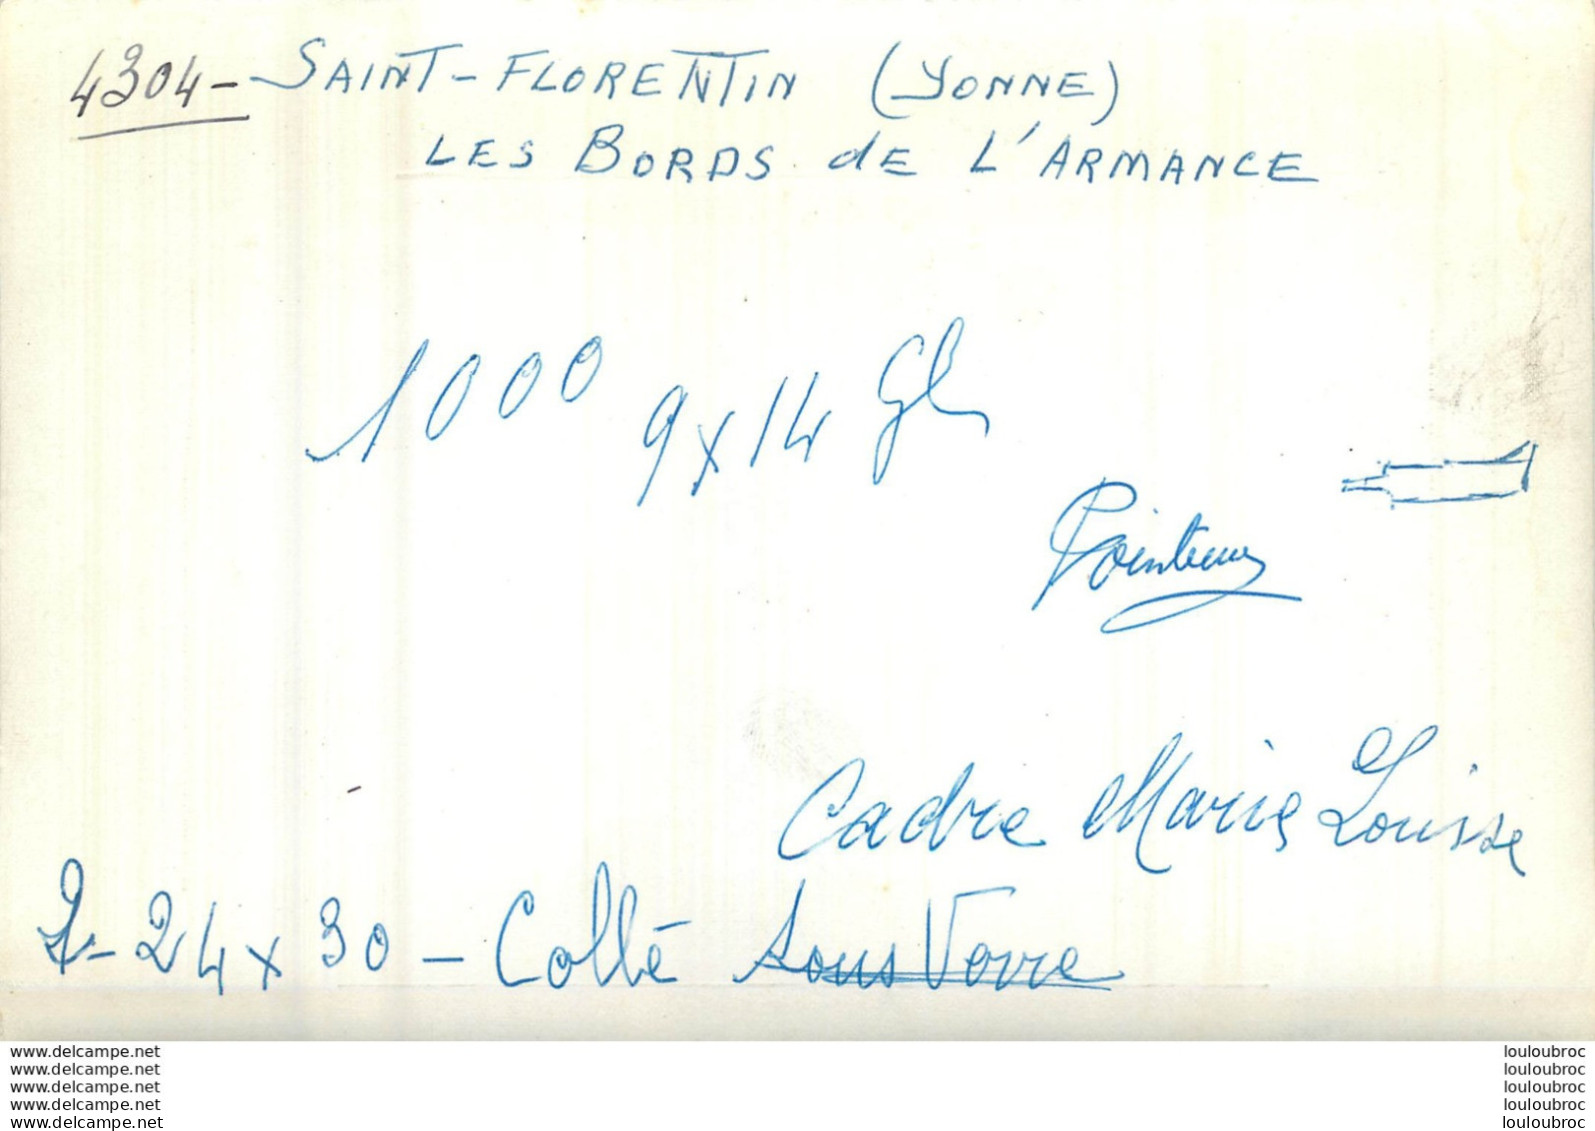 4304- SAINT-FLORENTIN (YONNE)
LES BORDS de L'ARMANCE
1000 9x14 Gl
Cadre Marie Louise
2-24x30-Collé sous Verre
www.delcampe.net
www.delcampe.net
www.delcampe.net
www.delcampe.net
www.delcampe.net
louloubroc
louloubroc
louloubroc
louloubroc
louloubroc